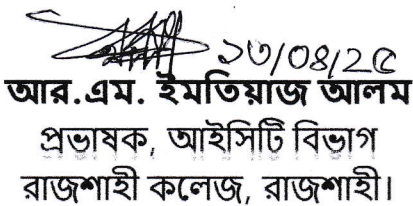 ১৩/০৪/২৫
আর.এম. ইমতিয়াজ আলম
প্রভাষক, আইসিটি বিভাগ
রাজশাহী কলেজ, রাজশাহী।